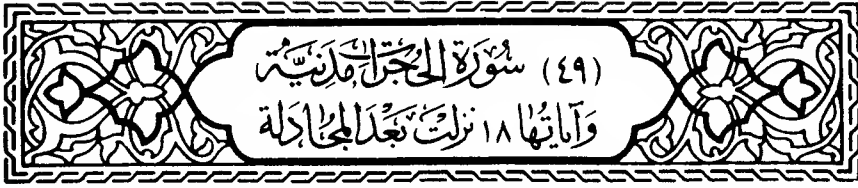 (٤٩) سُورَةُ الحُجُرَاتِ مَدَنِيَّةٌ
وَآيَاتُهَا ١٨ نَزَلَتْ بَعْدَ المُجَادلَة